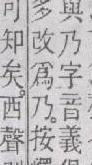 與乃字音義
多改爲乃按
可知矣西聲